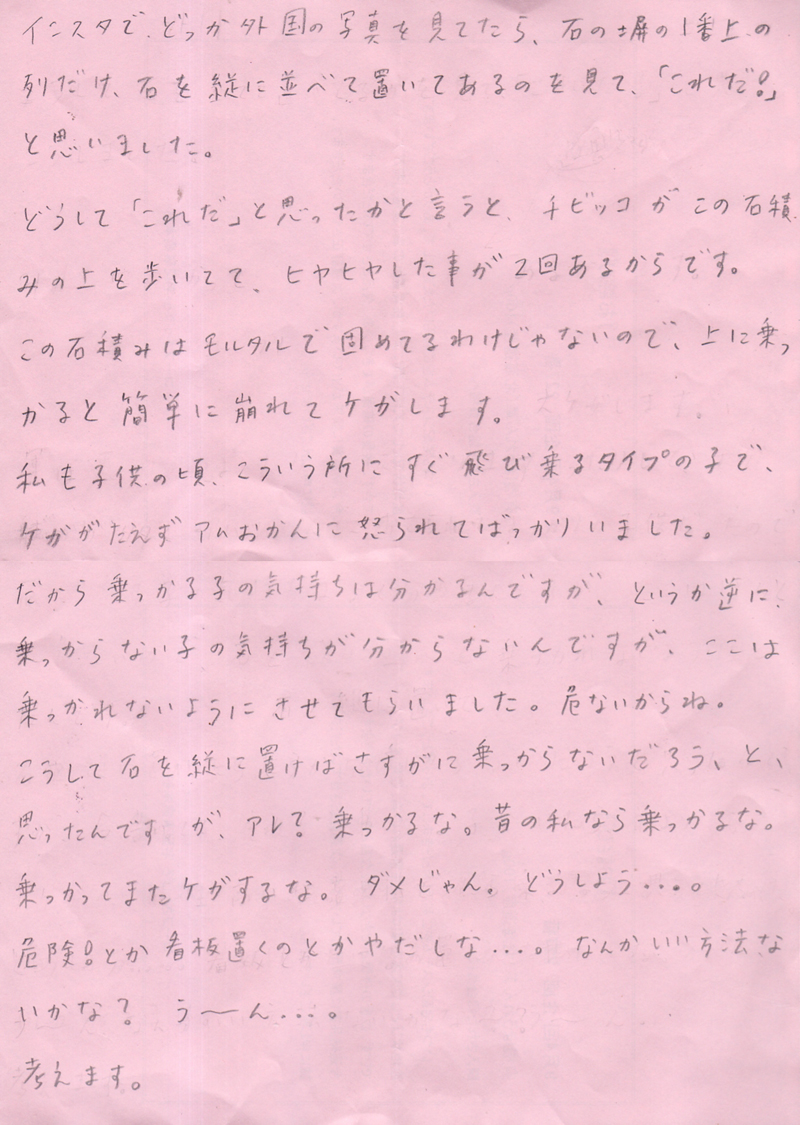 インスタで、どっか外国の写真を見てたら、石の塀の1番上の
列だけ、石を縦に並べて置いてあるのを見て、「これだ!」
と思いました。
どうして「これだ」と思ったかと言うと、チビッコがこの石積
みの上を歩いてて、ヒヤヒヤした事が2回あるからです。
この石積みはモルタルで固めてるわけじゃないので、上に乗っ
かると簡単に崩れてケガします。
私も子供の頃、こういう所にすぐ飛び乗るタイプの子で、
ケガがたえずアムおかんに怒られてばっかりいました。
だから乗っかる子の気持ちは分かるんですが、というか逆に、
乗っからない子の気持ちが分からないんですが、ここは
乗っかれないようにさせてもらいました。危ないからね。
こうして石を縦に置けばさすがに乗っからないだろう、と、
思ったんですが、アレ?乗っかるな。昔の私なら乗っかるな。
乗っかってまたケガするな。ダメじゃん。どうしよう・・・。
危険!とか看板置くのとかやだしな・・・。なんかいい方法な
いかな?う〜ん・・・。
考えます。